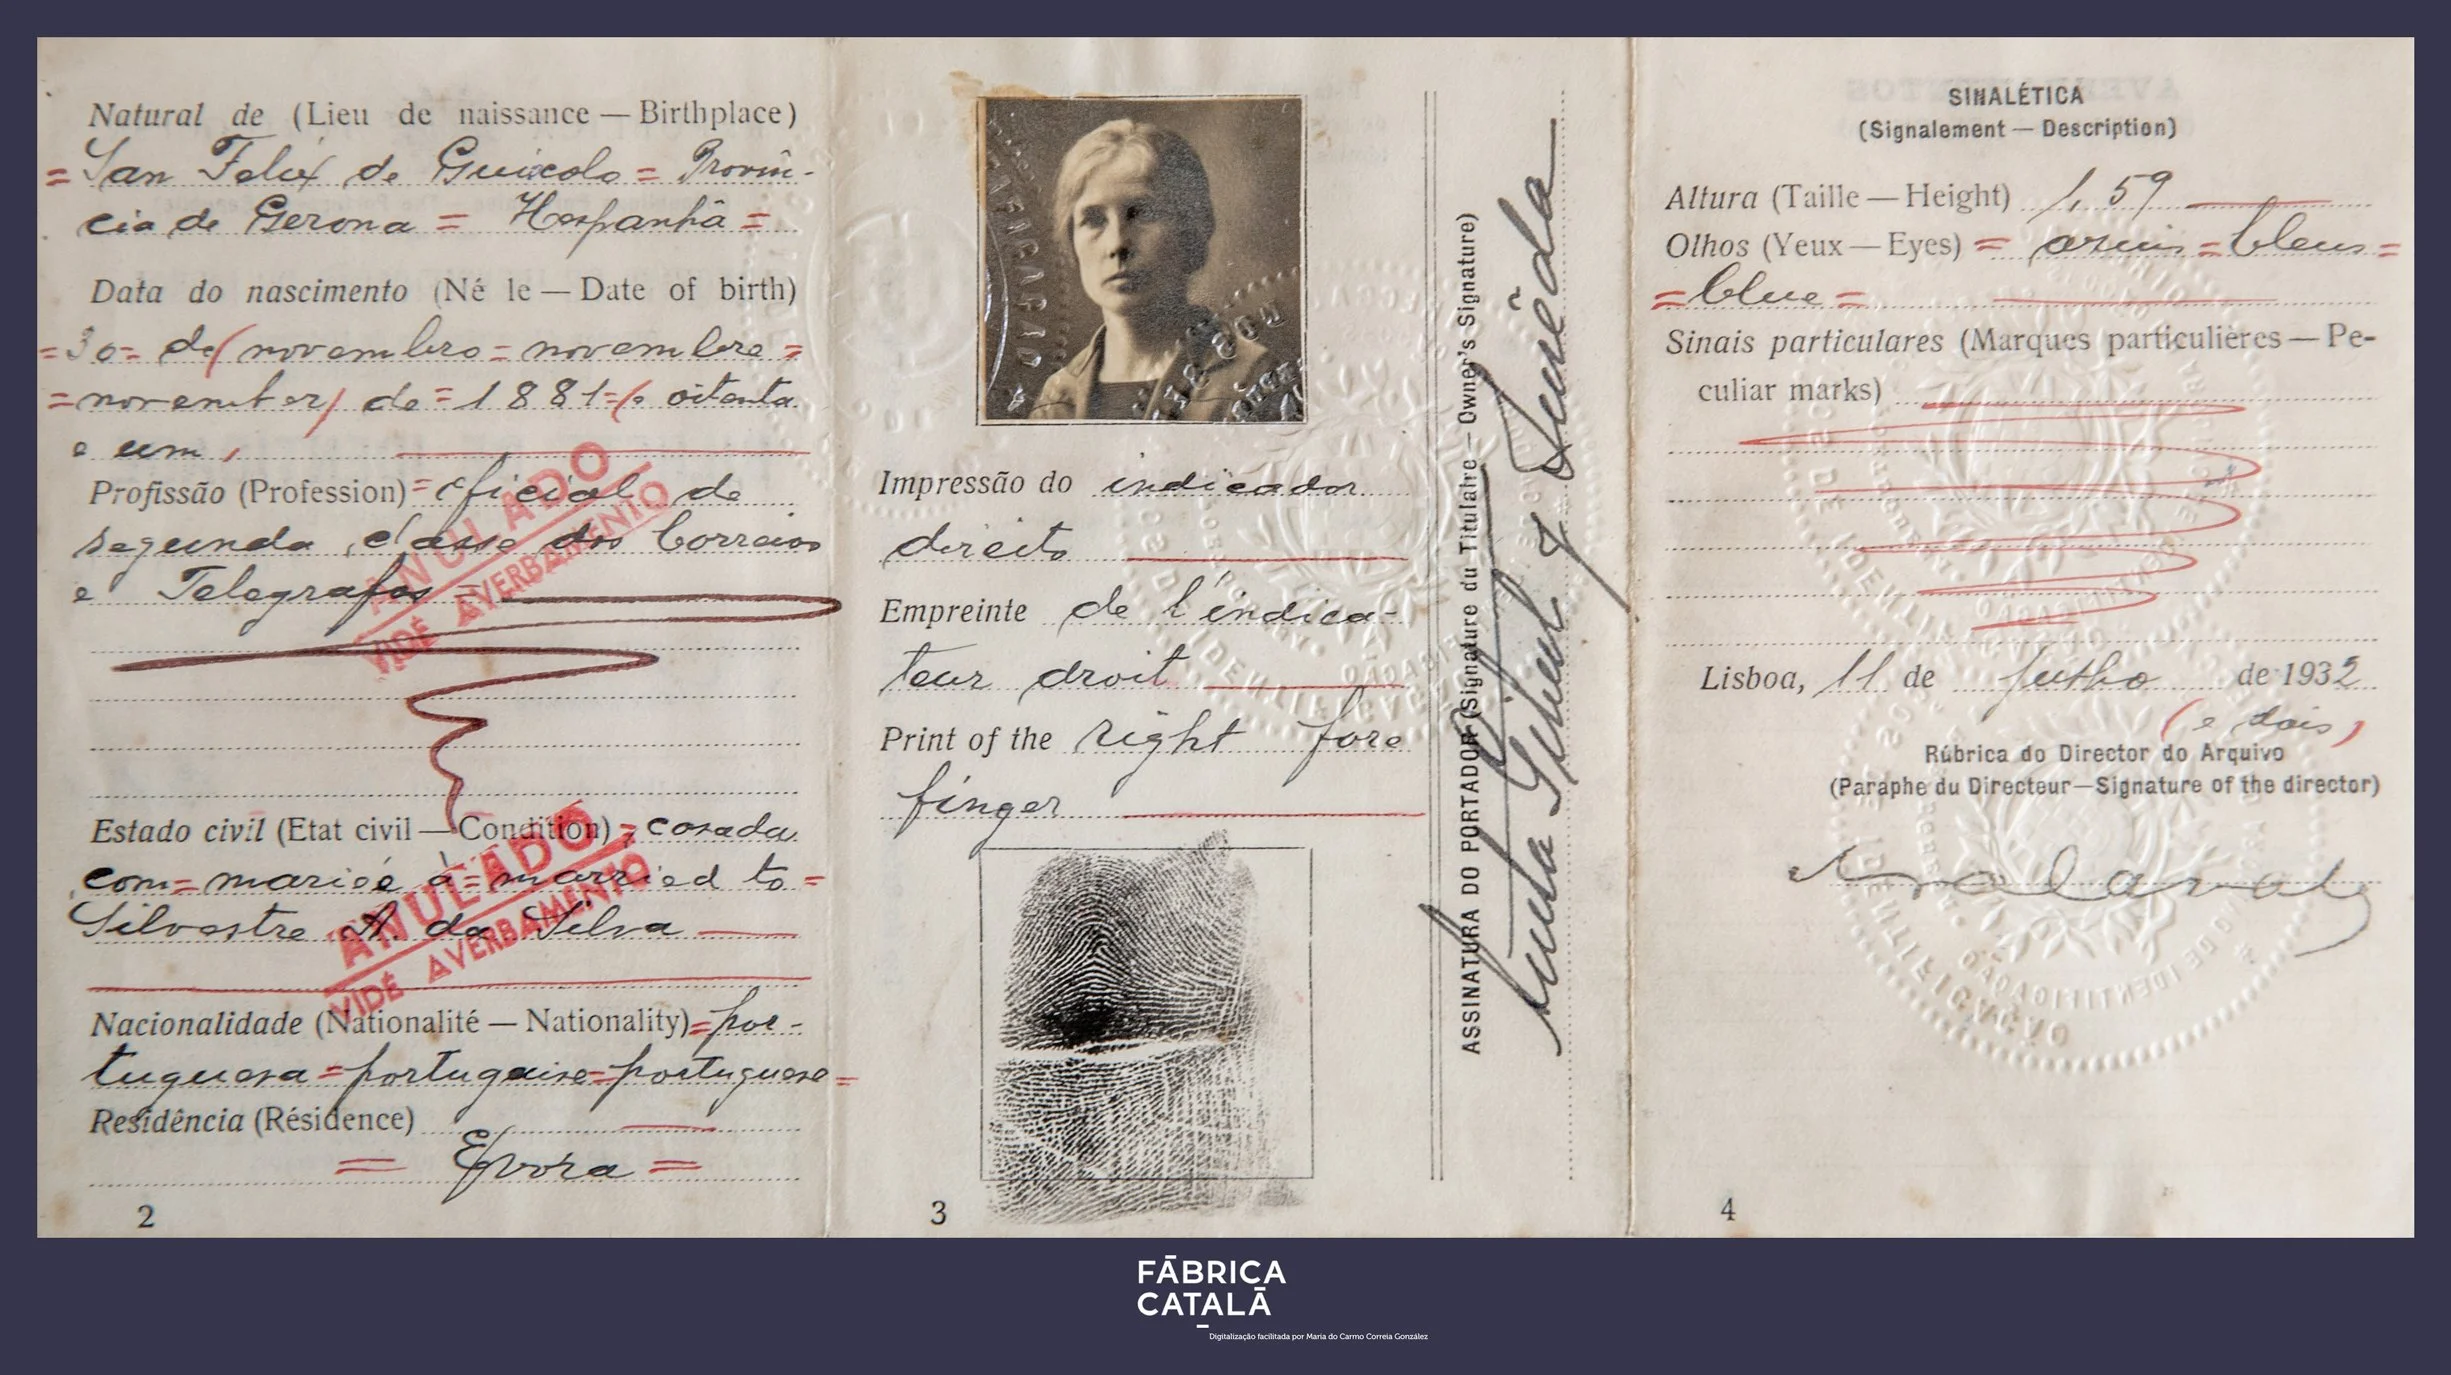 Natural de (Lieu de naissance — Birthplace)
= San Felix de Guixols = Provin-
cia de Gerona = Hespanha =
Data do nascimento (Né le — Date of birth)
= 30 = de (novembro = novembre =
= november) de = 1881 = (e oitenta
e um)
Profissão (Profession) = oficial de
segunda classe dos Correios
e Telegrafos =
ANULADO
VIDÉ AVERBAMENTO
Estado civil (Etat civil — Condition) = casada
com = mariée à = married to =
Silvestre A. da Silva
ANULADO
VIDÉ AVERBAMENTO
Nacionalidade (Nationalité — Nationality) = por-
tuguesa = portugaise = portuguese =
Residência (Résidence)
= Evora =
2
Impressão do indicador
direito
Empreinte de l'indica-
teur droit
Print of the right fore
finger
3
ASSINATURA DO PORTADOR (Signature du Titulaire — Owner's Signature)
SINALÉTICA
(Signalement — Description)
Altura (Taille — Height) 1,59
Olhos (Yeux — Eyes) = azuis = bleus =
= blue =
Sinais particulares (Marques particulières — Pe-
culiar marks)
Lisboa, 11 de Julho de 1932
(e dois)
Rúbrica do Director do Arquivo
(Paraphe du Directeur — Signature of the director)
4
FÁBRICA
CATALÃ
Digitalização facilitada por Maria do Carmo Correia González